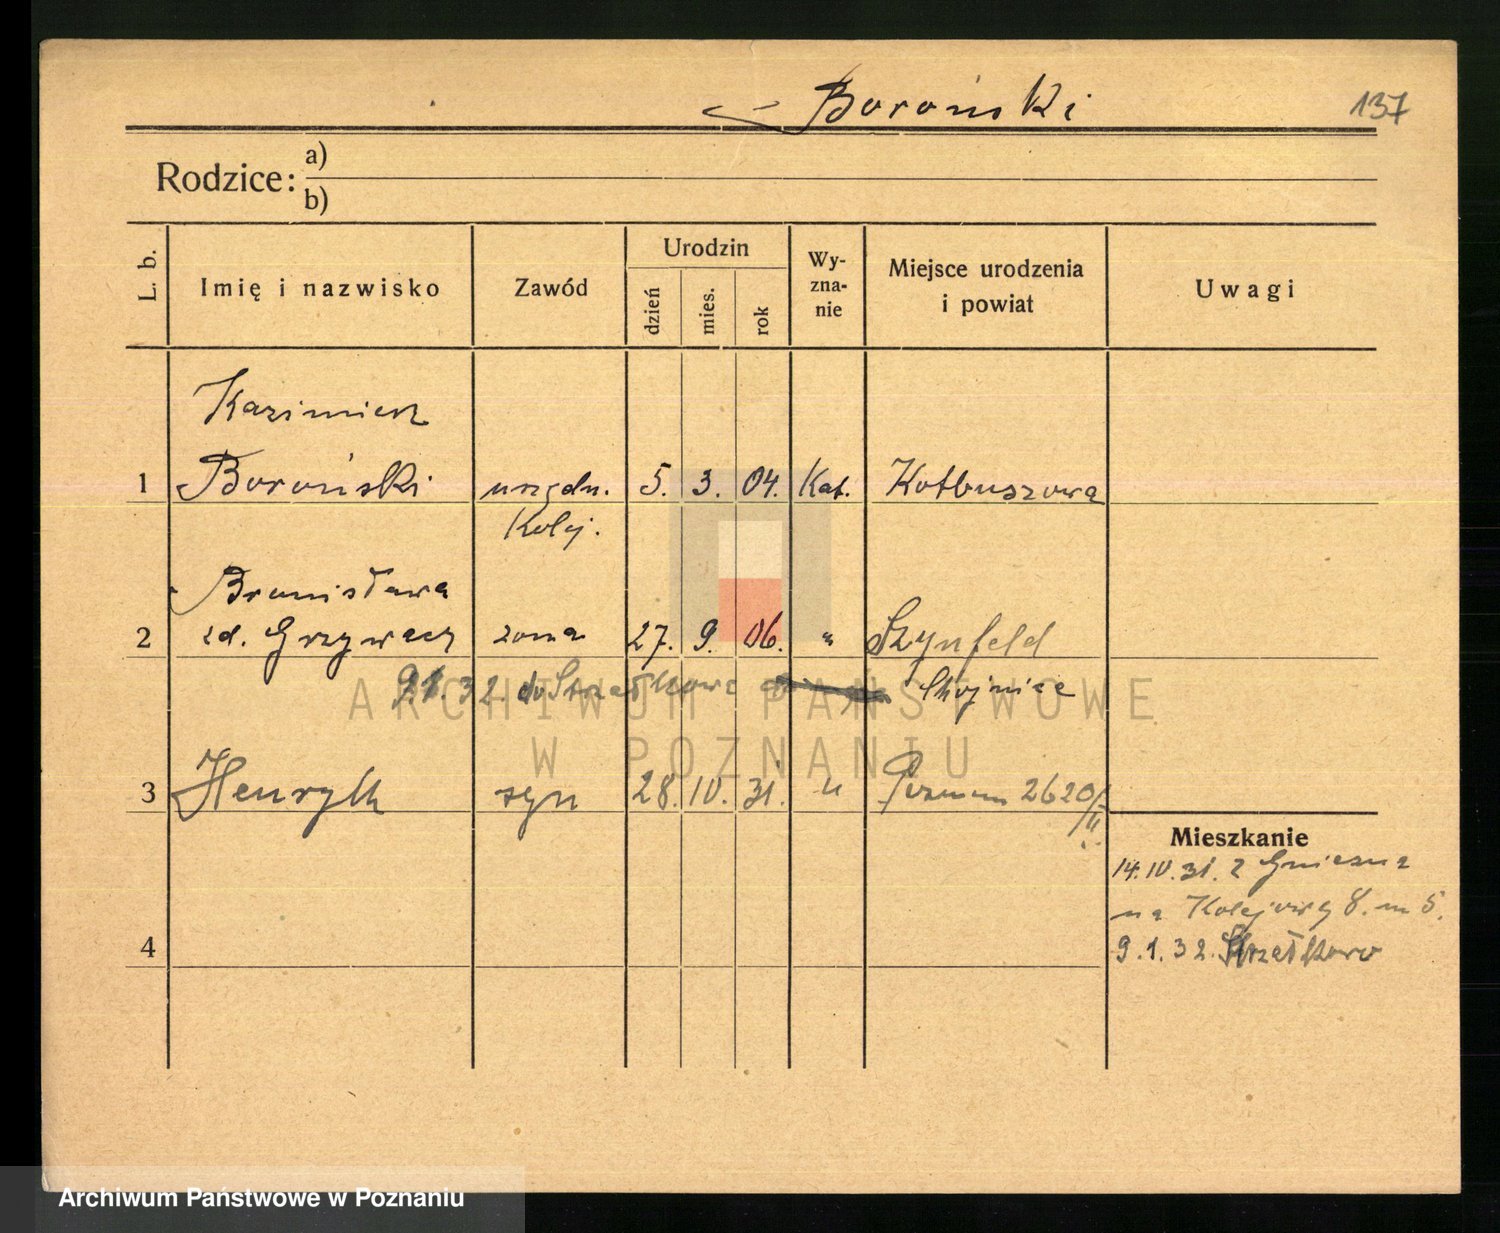 Boroński
137
Rodzice: a)
b)
L. b.
Imię i nazwisko
Zawód
Urodzin
dzień
mies.
rok
Wy-
zna-
nie
Miejsce urodzenia
i powiat
Uwagi
Kazimierz
1 Boroński urzędn. 5. 3. 04. Kat. Kolbuszowa
Kolej.
Bronisława
2 zd. Grzywacz żona 27. 9. 06. " Szynfeld
9.1.32. do Strzałkowa Chojnice
3 Henryk syn 28. 10. 31. " Poznań 2620/
II
Mieszkanie
14.10.31. z Gniezna
na Kolejową 8. m 5.
4
9.1.32. Strzałkowo
ARCHIWUM PAŃSTWOWE
W POZNANIU
Archiwum Państwowe w Poznaniu